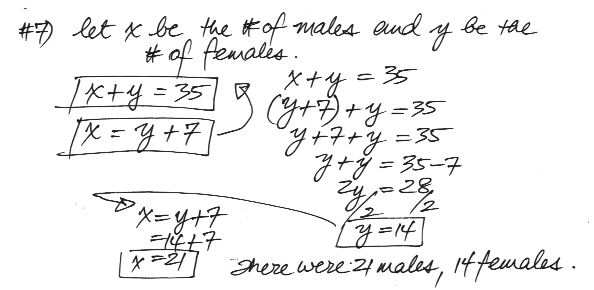 #7) let x be the # of males and y be the
# of females.
x+y = 35
x = y+7
x+y = 35
(y+7)+y = 35
y+7+y = 35
y+y = 35-7
2y = 28
/2 /2
y = 14
x = y+7
= 14+7
x = 21
There were 21 males, 14 females.